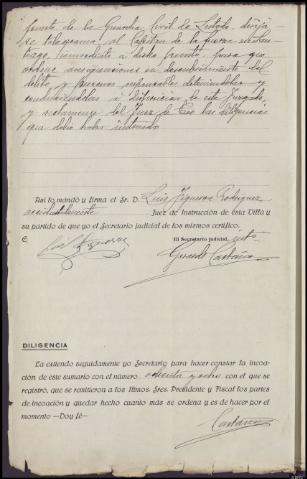 puesto de la Guardia Civil de Lestedo, dirija-
se telegrama, al Capitan de la fuerza
inmediato a dicho puesto, para que
ordene averiguaciones en descubrimiento del
delito, y personas responsables deteniendolas y
a disposicion de este Juzgado,
y reclamense del Juez de Eso las diligencias
que debio haber instruido
Así lo mandó y firma el Sr. D. Luis Figueroa Rodriguez
accidentalmente Juez de Instrucción de esta Villa y
su partido de que yo el Secretario judicial de los mismos certifico.
El Secretario judicial, into
Luis Figueroa
Gerardo Castaño
DILIGENCIA
La extiendo seguidamente yo Secretario para hacer constar la incoa-
ción de este sumario con el número ochenta y ocho con el que se
registró, que se remitieron a los Iltmos. Sres. Presidente y Fiscal los partes
de incoación y quedar hecho cuanto más se ordena y es de hacer por el
momento —Doy fé—
Castaño